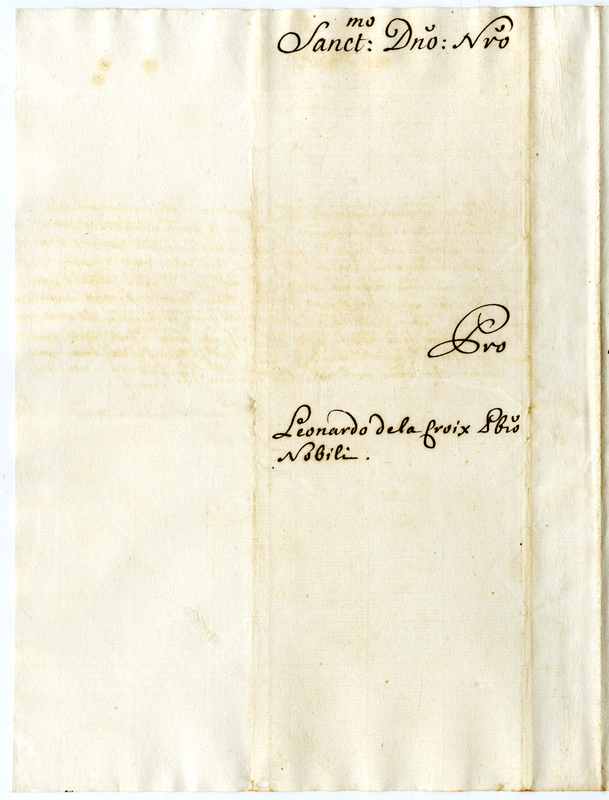 Sanct:mo Dno: Nro
Pro
Leonardo dela Croix Pbro
Nobili.